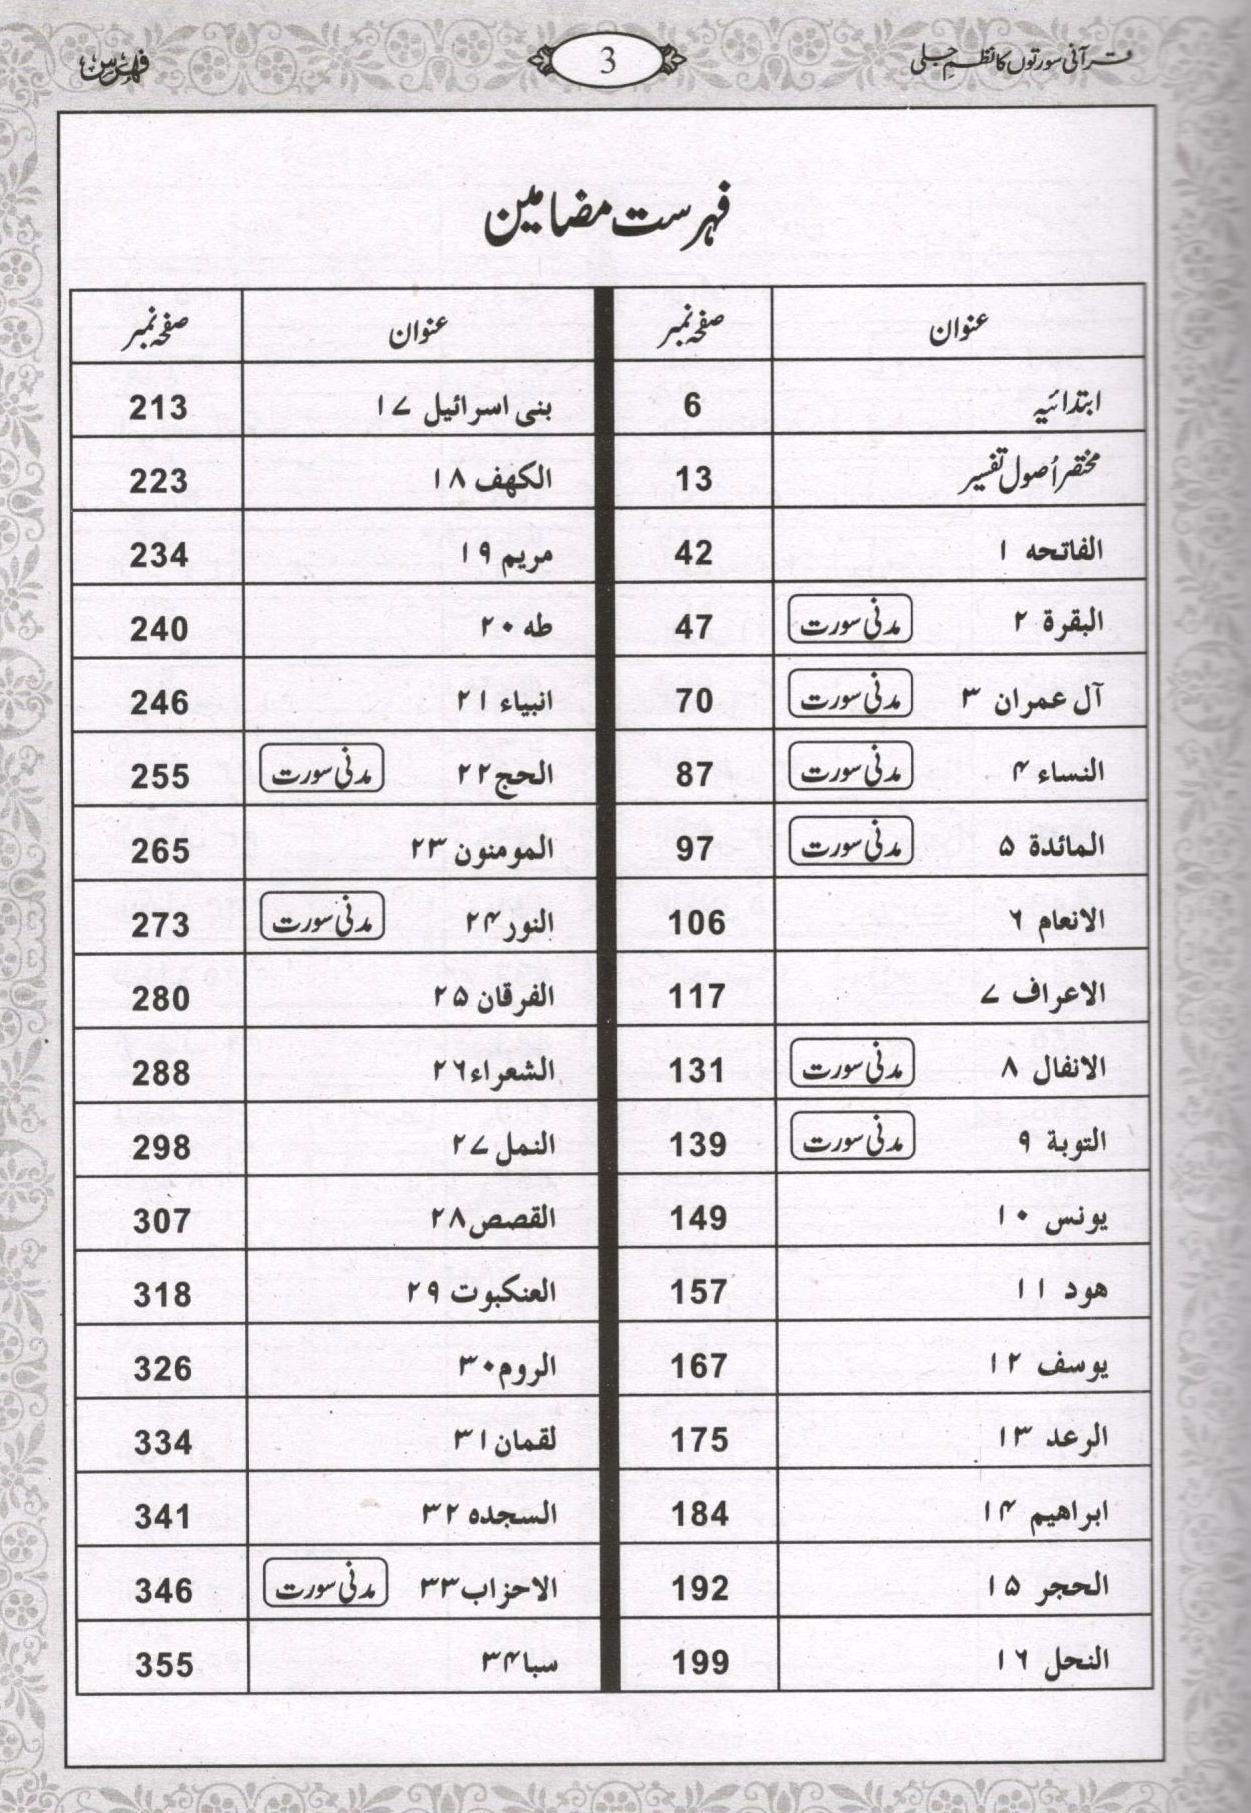 قرآنی سورتوں کا نظمِ جلی
3
فہرست
فہرست مضامین
عنوان صفحہ نمبر عنوان صفحہ نمبر
ابتدائیہ 6 بنی اسرائیل ۱۷ 213
مختصر اُصول تفسیر 13 الکھف ۱۸ 223
الفاتحه ۱ 42 مریم ۱۹ 234
البقرة ۲ مدنی سورت 47 طه ۲۰ 240
آل عمران ۳ مدنی سورت 70 انبیاء ۲۱ 246
النساء ۴ مدنی سورت 87 الحج ۲۲ مدنی سورت 255
المائدة ۵ مدنی سورت 97 المومنون ۲۳ 265
الانعام ۶ 106 النور ۲۴ مدنی سورت 273
الاعراف ۷ 117 الفرقان ۲۵ 280
الانفال ۸ مدنی سورت 131 الشعراء ۲۶ 288
التوبة ۹ مدنی سورت 139 النمل ۲۷ 298
یونس ۱۰ 149 القصص ۲۸ 307
هود ۱۱ 157 العنکبوت ۲۹ 318
یوسف ۱۲ 167 الروم ۳۰ 326
الرعد ۱۳ 175 لقمان ۳۱ 334
ابراهیم ۱۴ 184 السجده ۳۲ 341
الحجر ۱۵ 192 الاحزاب ۳۳ مدنی سورت 346
النحل ۱۶ 199 سبا ۳۴ 355